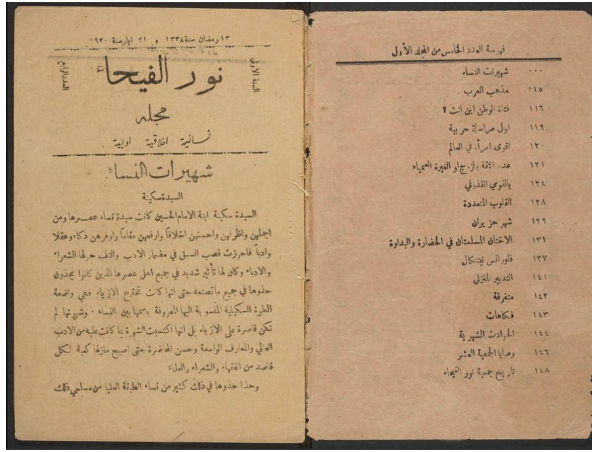 فهرسة العدد الخامس من المجلد الأول
٠٠٠ شهيرات النساء
١١٥ مذهب العرب
١١٦ فتاة الوطن اين انت ؟
١١٩ اول مراسلة حربية
١٢٠ اقوى امرأة في العالم
١٢١ عدم الثقة بالزوج او الغيرة العمياء
١٢٤ يالقومي انقذوني
١٢٨ القلوب المتعددة
١٢٩ شهر حزيران
١٣٩ الاختان المسلمتان في الحضارة والبداوة
١٣٧ فلورانس نيتنكال
١٤١ التدبير المنزلي
١٤٢ متفرقة
١٤٣ فكاهات
١٤٤ الحوادث الشهرية
١٤٦ وصايا الجمعية العشر
١٤٨ تاريخ جمعية نور الفيحاء
١٣ رمضان سنة ١٣٣٨ و ٣١ ايار سنة ٩٢٠
السنة الاولى
نور الفيحاء
العدد الرابع
مجلة
نسائية اخلاقية ادبية
شهيرات النساء
السيدة سكينة
السيدة سكينة ابنة الامام الحسين كانت سيدة نساء عصرها ومن
اجملهن واظرفهن واحسنهن اخلاقاً وارفعهن مقاماً واوفرهن ذكاء وعقلا
وادباً فاحرزت قصب السبق في مضمار الادب والتف حولها الشعراء
والادباء وكان لها تأثير شديد في جميع اهل عصرها الذين كانوا يحذون
حذوها في جميع ماتصنعه حتى انها كانت تخترع الازياء فهي واضعة
الطرة السكينية المنسوبة اليها المعروفة باسمها بين النساء . وشهرتها لم
تكن قاصرة على الازياء بل انها اكتسبت الشهرة بما كانت عليه من الادب
العالي والمعارف الواسعة وحسن المحاضرة حتى اصبح منزلها كعبة لكل
قاصد من الفقهاء والشعراء والعلماء
وحذا حذوها في ذلك كثير من نساء الطبقة العليا فمن مساعي ذلك